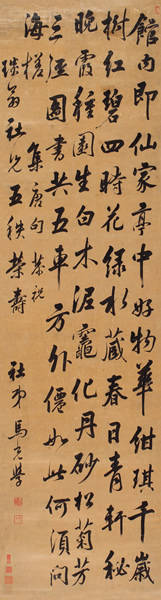 館內即仙家亭中好物華紺琪千歲
樹紅碧四時花綠水藏春日青軒秘
晚霞種園生白木泥竈化丹砂松菊芳
三逕圖書共五車方外僊如此何須問
海槎 集唐句 恭祝
翁社兄五秩榮壽
社弟馬學